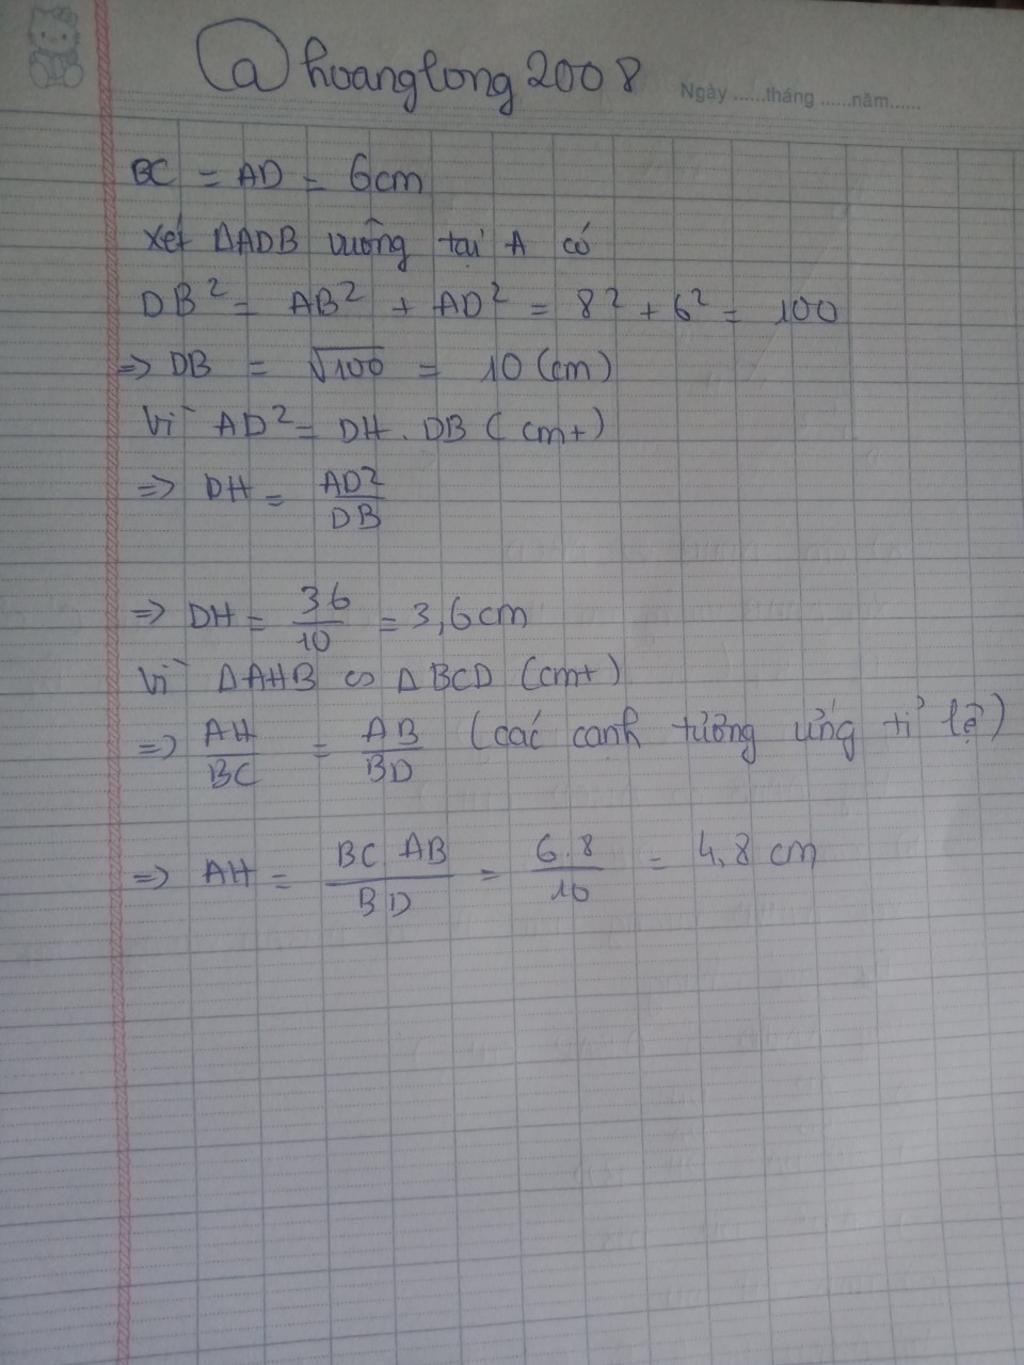 @hoanglong2008
Ngày ......tháng ......năm......
BC = AD = 6cm
Xét ΔADB vuông tại A có
DB² = AB² + AD² = 8² + 6² = 100
=> DB = √100 = 10 (cm)
Vì AD² = DH . DB ( cmt)
=> DH = AD²/DB
=> DH = 36/10 = 3,6cm
Vì ΔAHB ∽ ΔBCD (cmt)
=> AH/BC = AB/BD (các cạnh tương ứng tỉ lệ)
=> AH = BC AB/BD = 6.8/10 = 4,8 cm